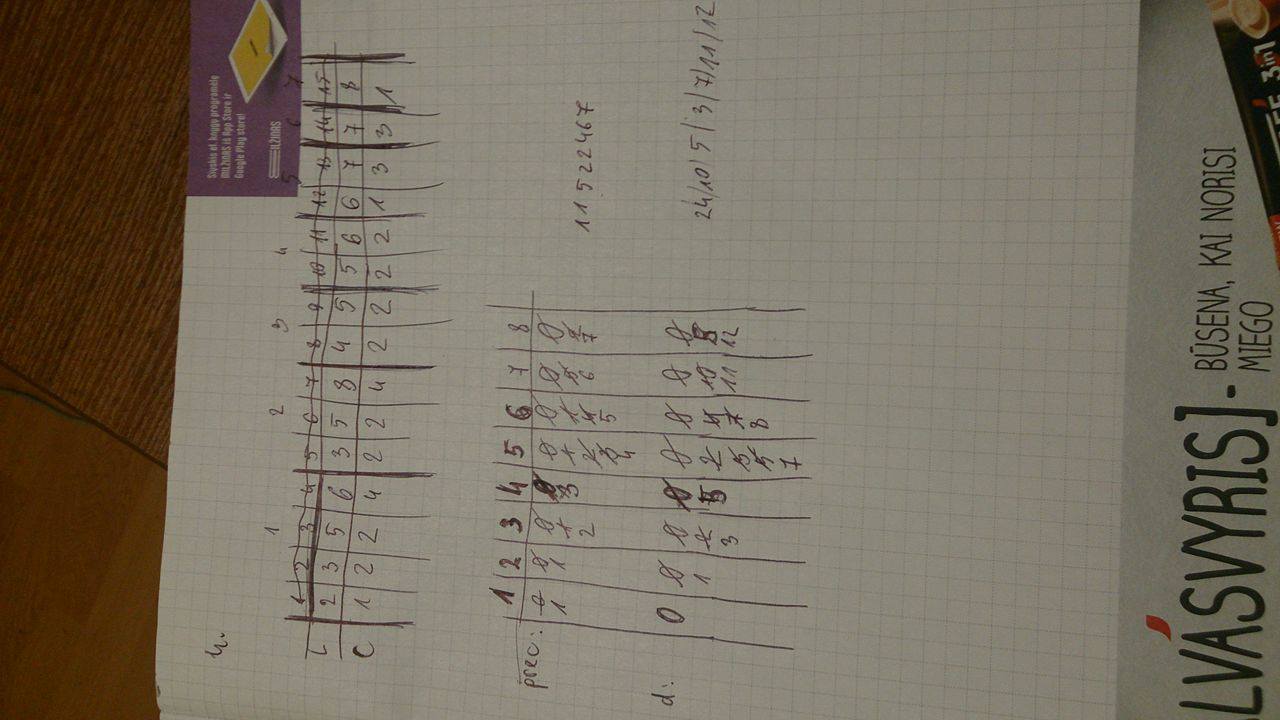 4.
Siųskis el. knygų programėlę
MILŽINAS iš App Store ir
Google Play store!
MILŽINAS
1 2 3 4 5 6 7
1 2 3 4 5 6 7 8 9 10 11 12 13 14 15
L 2 3 5 6 3 5 8 4 5 5 6 6 7 7 8
C 1 2 2 4 2 2 4 2 2 2 2 1 3 3 1
1 2 3 4 5 6 7 8
prec: 0 0 0 0 0 0 0 0
1 1 1 3 1 1 5 2
2 2 4 6 7
3 5
4
11522467
d: 0 0 0 0 0 0 0 0
1 2 5 2 4 10 5
3 3 7 11 12
5 8
7
24/10/5/3/7/11/12
LVÁSVYRIS] - BŪSENA, KAI NORISI
MIEGO
3in1